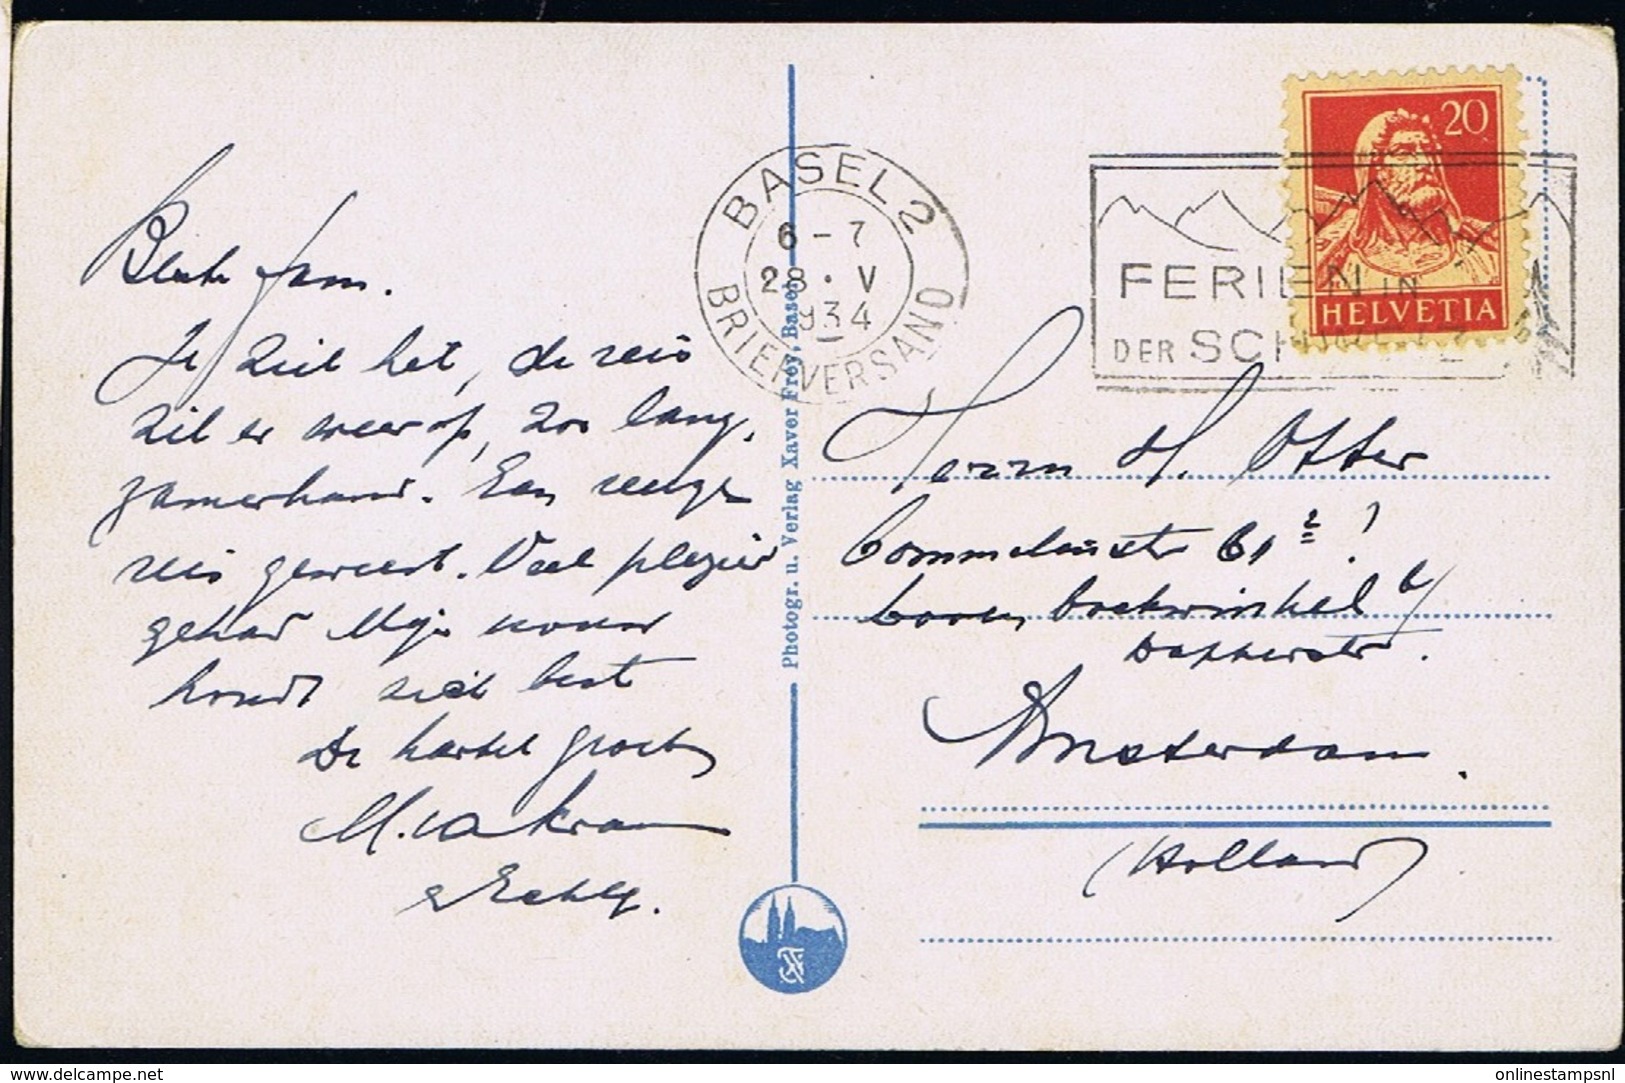 Beste fam.
Je ziet het, de reis
zit er weer op, zoo lang-
zamerhand. Een
reis geweest. Veel plezier
gehad Mijn
houdt zich best
De hartel groeten
M.
BASEL 2
6-7
28.V
1934
BRIEFVERSAND
FERIEN IN
DER SCHWEIZ
20
HELVETIA
Photogr. u. Verlag Xaver Frey, Basel
Herrn H. Otter
Commelinstr 61 2!
boven boekwinkel b/
Dapperstr.
Amsterdam.
(Holland)
www.delcampe.net
onlinestampsnl